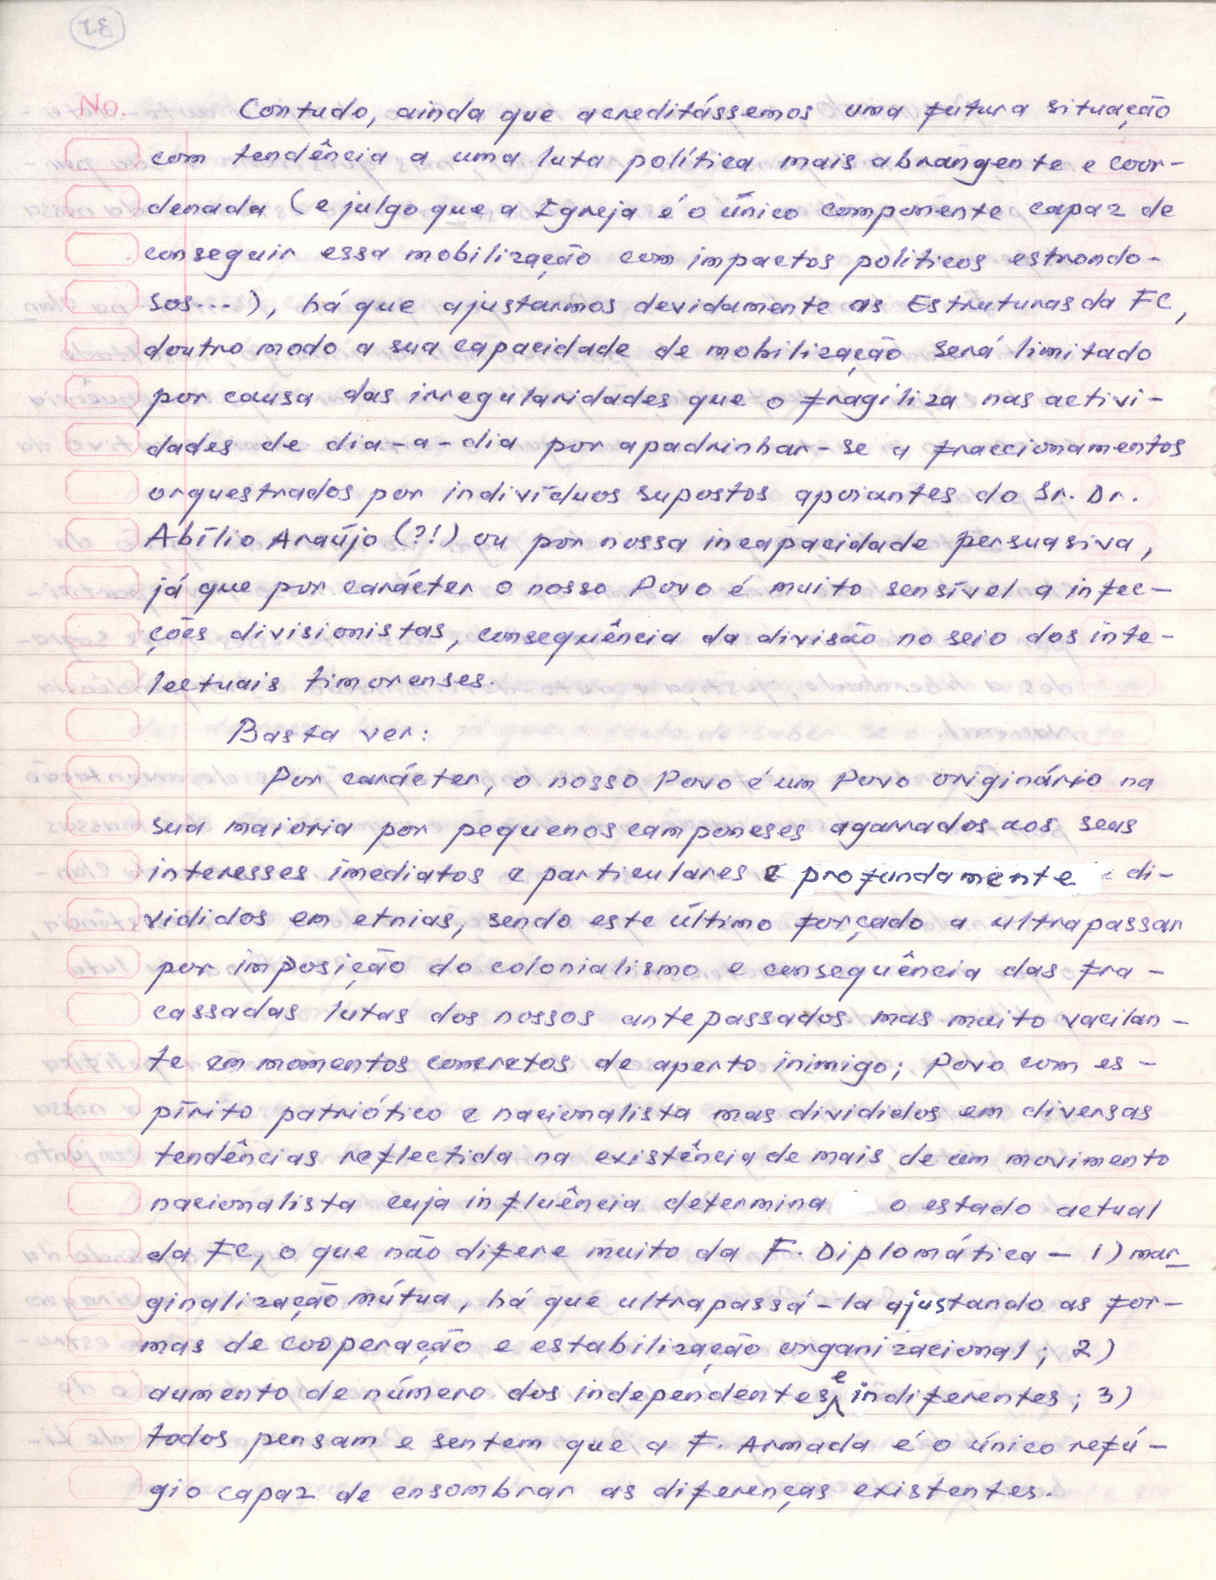 31
No.
Contudo, ainda que acreditássemos uma futura situação
com tendência a uma luta política mais abrangente e coor-
denada (e julgo que a Igreja é o único componente capaz de
conseguir essa mobilização com impactos políticos estrondo-
sos...), há que ajustarmos devidamente as Estruturas da FC,
doutro modo a sua capacidade de mobilização será limitado
por causa das irregularidades que o fragiliza nas activi-
dades de dia-a-dia por apadrinhar-se a fraccionamentos
orquestrados por indivíduos supostos apoiantes do Sr. Dr.
Abílio Araújo (?!) ou por nossa incapacidade persuasiva,
já que por carácter o nosso Povo é muito sensível a infec-
ções divisionistas, consequência da divisão no seio dos inte-
lectuais timorenses.
Basta ver:
Por carácter, o nosso Povo é um Povo originário na
sua maioria por pequenos camponeses agarrados aos seus
interesses imediatos e particulares e profundamente di-
vididos em etnias, sendo este último forçado a ultrapassar
por imposição do colonialismo e consequência das fra-
cassadas lutas dos nossos antepassados mas muito vacilan-
te em momentos concretos de aperto inimigo; Povo com es-
pírito patriótico e nacionalista mas divididos em diversas
tendências reflectida na existência de mais de um movimento
nacionalista cuja influência determina o estado actual
da FC, o que não difere muito da F. Diplomática - 1) mar
ginalização mútua, há que ultrapassá-la ajustando as for-
mas de cooperação e estabilização organizacional; 2)
aumento de número dos independentes e indiferentes; 3)
todos pensam e sentem que a F. Armada é o único refú-
gio capaz de ensombrar as diferenças existentes.